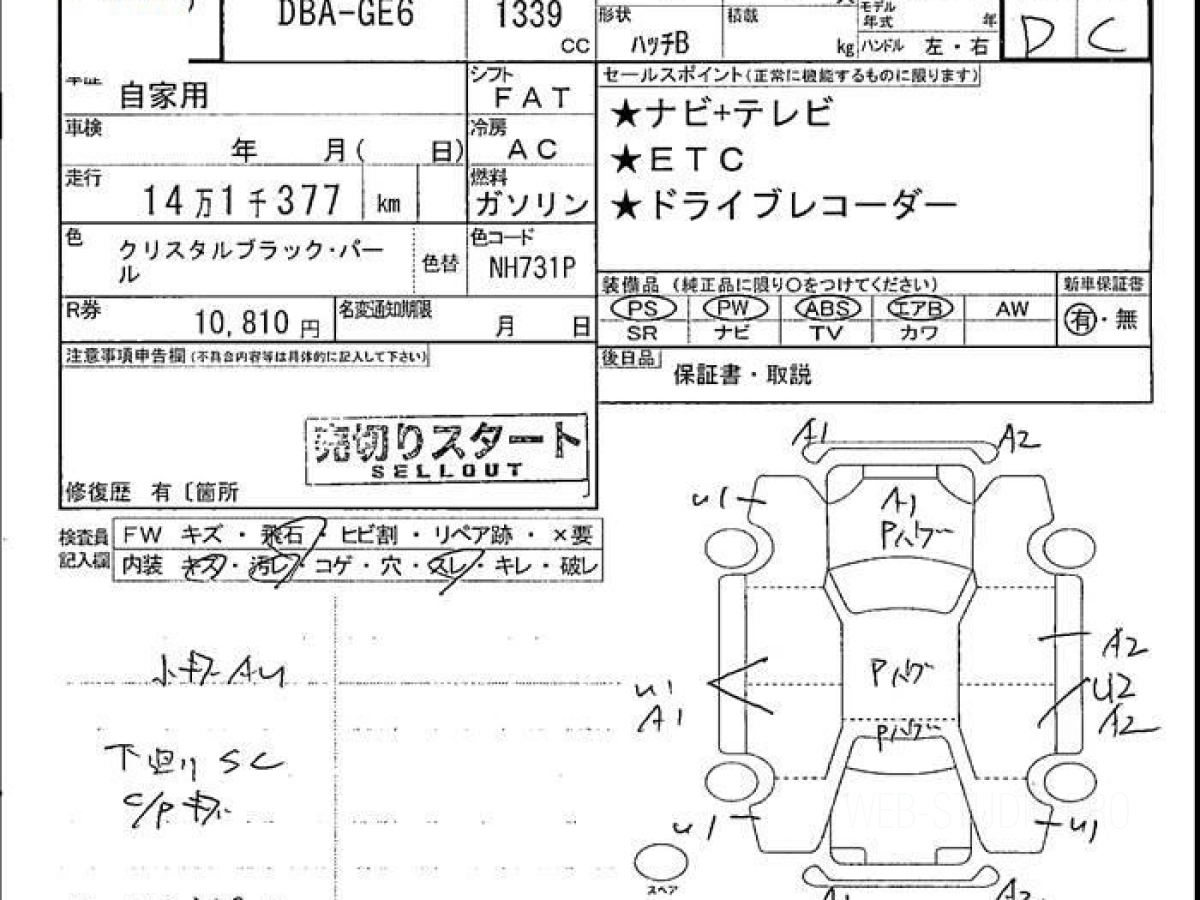 DBA-GE6
1339
CC
形状
ハッチB
積載
kg
モデル
年式
年
ハンドル 左・右
D C
自家用
シフト
FAT
車検
年 月( 日)
冷房
AC
走行
14万1千377 km
燃料
ガソリン
色
クリスタルブラック・パー
ル
色替
色コード
NH731P
R券
10,810 円
名変通知期限
月 日
注意事項申告欄(不具合内容等は具体的に記入して下さい)
売切りスタート
SELLOUT
修復歴 有〔箇所
セールスポイント(正常に機能するものに限ります)
★ナビ+テレビ
★ETC
★ドライブレコーダー
装備品 (純正品に限り○をつけてください)
新車保証書
PS PW ABS エアB AW
SR ナビ TV カワ
有・無
後日品
保証書・取説
検査員
記入欄
FW キズ・飛石・ヒビ割・リペア跡・×要
内装 キズ・汚レ・コゲ・穴・スレ・キレ・破レ
小キズ AU
下廻り SC
C/P キズ
A1 A2
U1
A1
Pハゲ
A2
Pハゲ
U1
A1
U2
A2
Pハゲ
U1
U1
スペア
A1
A2